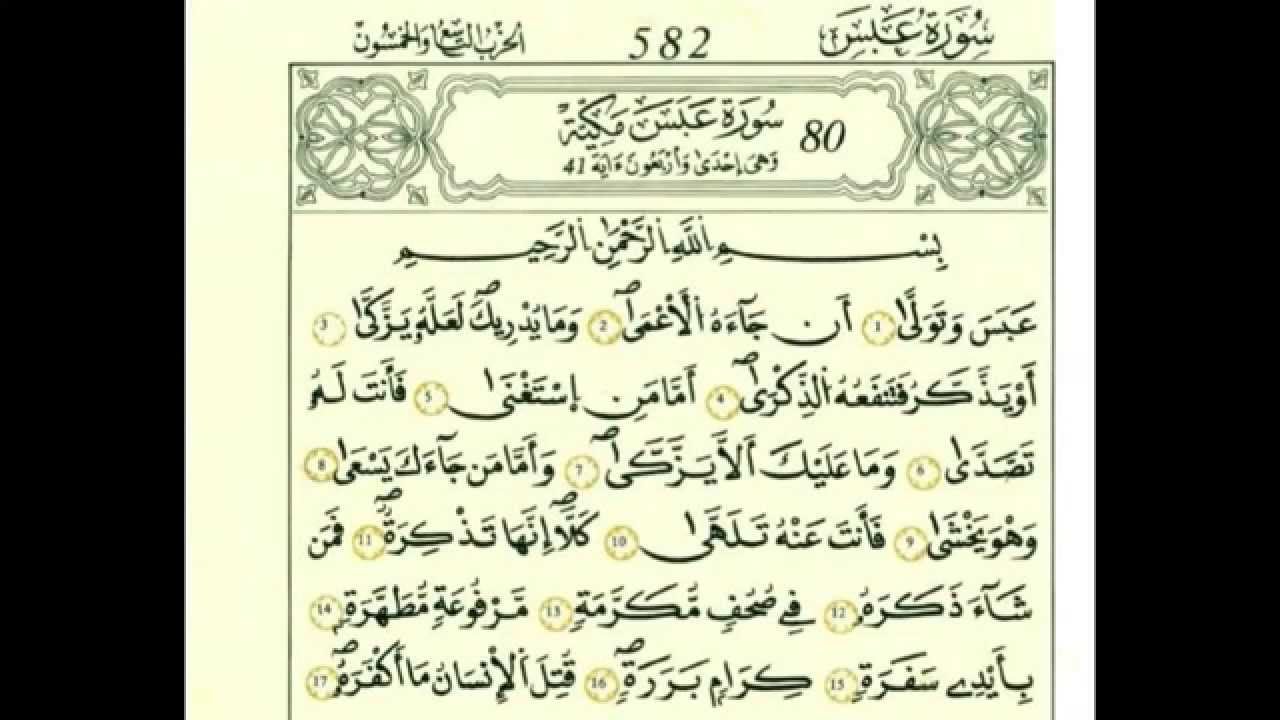 سُورَةُ عَبَسَ 582 الحزب التاسع والخمسون
80 سُورَةُ عَبَسَ مَكِّيَّةٌ
وَهِيَ إِحْدَىٰ وَأَرْبَعُونَ ءَايَة 41
بِسْمِ اِ۬للَّهِ اِ۬لرَّحْمَٰنِ اِ۬لرَّحِيمِ
عَبَسَ وَتَوَلَّىٰٓ 1 أَن جَآءَهُ اُ۬لْأَعْمَىٰ 2 وَمَا يُدْرِيكَ لَعَلَّهُۥ يَزَّكَّىٰٓ 3
أَوْ يَذَّكَّرُ فَتَنفَعُهُ اُ۬لذِّكْرَىٰٓ 4 أَمَّا مَنِ اِ۪سْتَغْنَىٰ 5 فَأَنتَ لَهُۥ
تَصَّدَّىٰ 6 وَمَا عَلَيْكَ أَلَّا يَزَّكَّىٰ 7 وَأَمَّا مَن جَآءَكَ يَسْعَىٰ 8
وَهْوَ يَخْشَىٰ 9 فَأَنتَ عَنْهُ تَلَهَّىٰ 10 كَلَّآ إِنَّهَا تَذْكِرَةٌ 11 فَمَن
شَآءَ ذَكَرَهُۥ 12 فِي صُحُفٍ مُّكَرَّمَةٍ 13 مَّرْفُوعَةٍ مُّطَهَّرَةٍ 14
بِأَيْدِي سَفَرَةٍ 15 كِرَامٍ بَرَرَةٍ 16 قُتِلَ اَ۬لْإِنسَانُ مَآ أَكْفَرَهُۥ 17